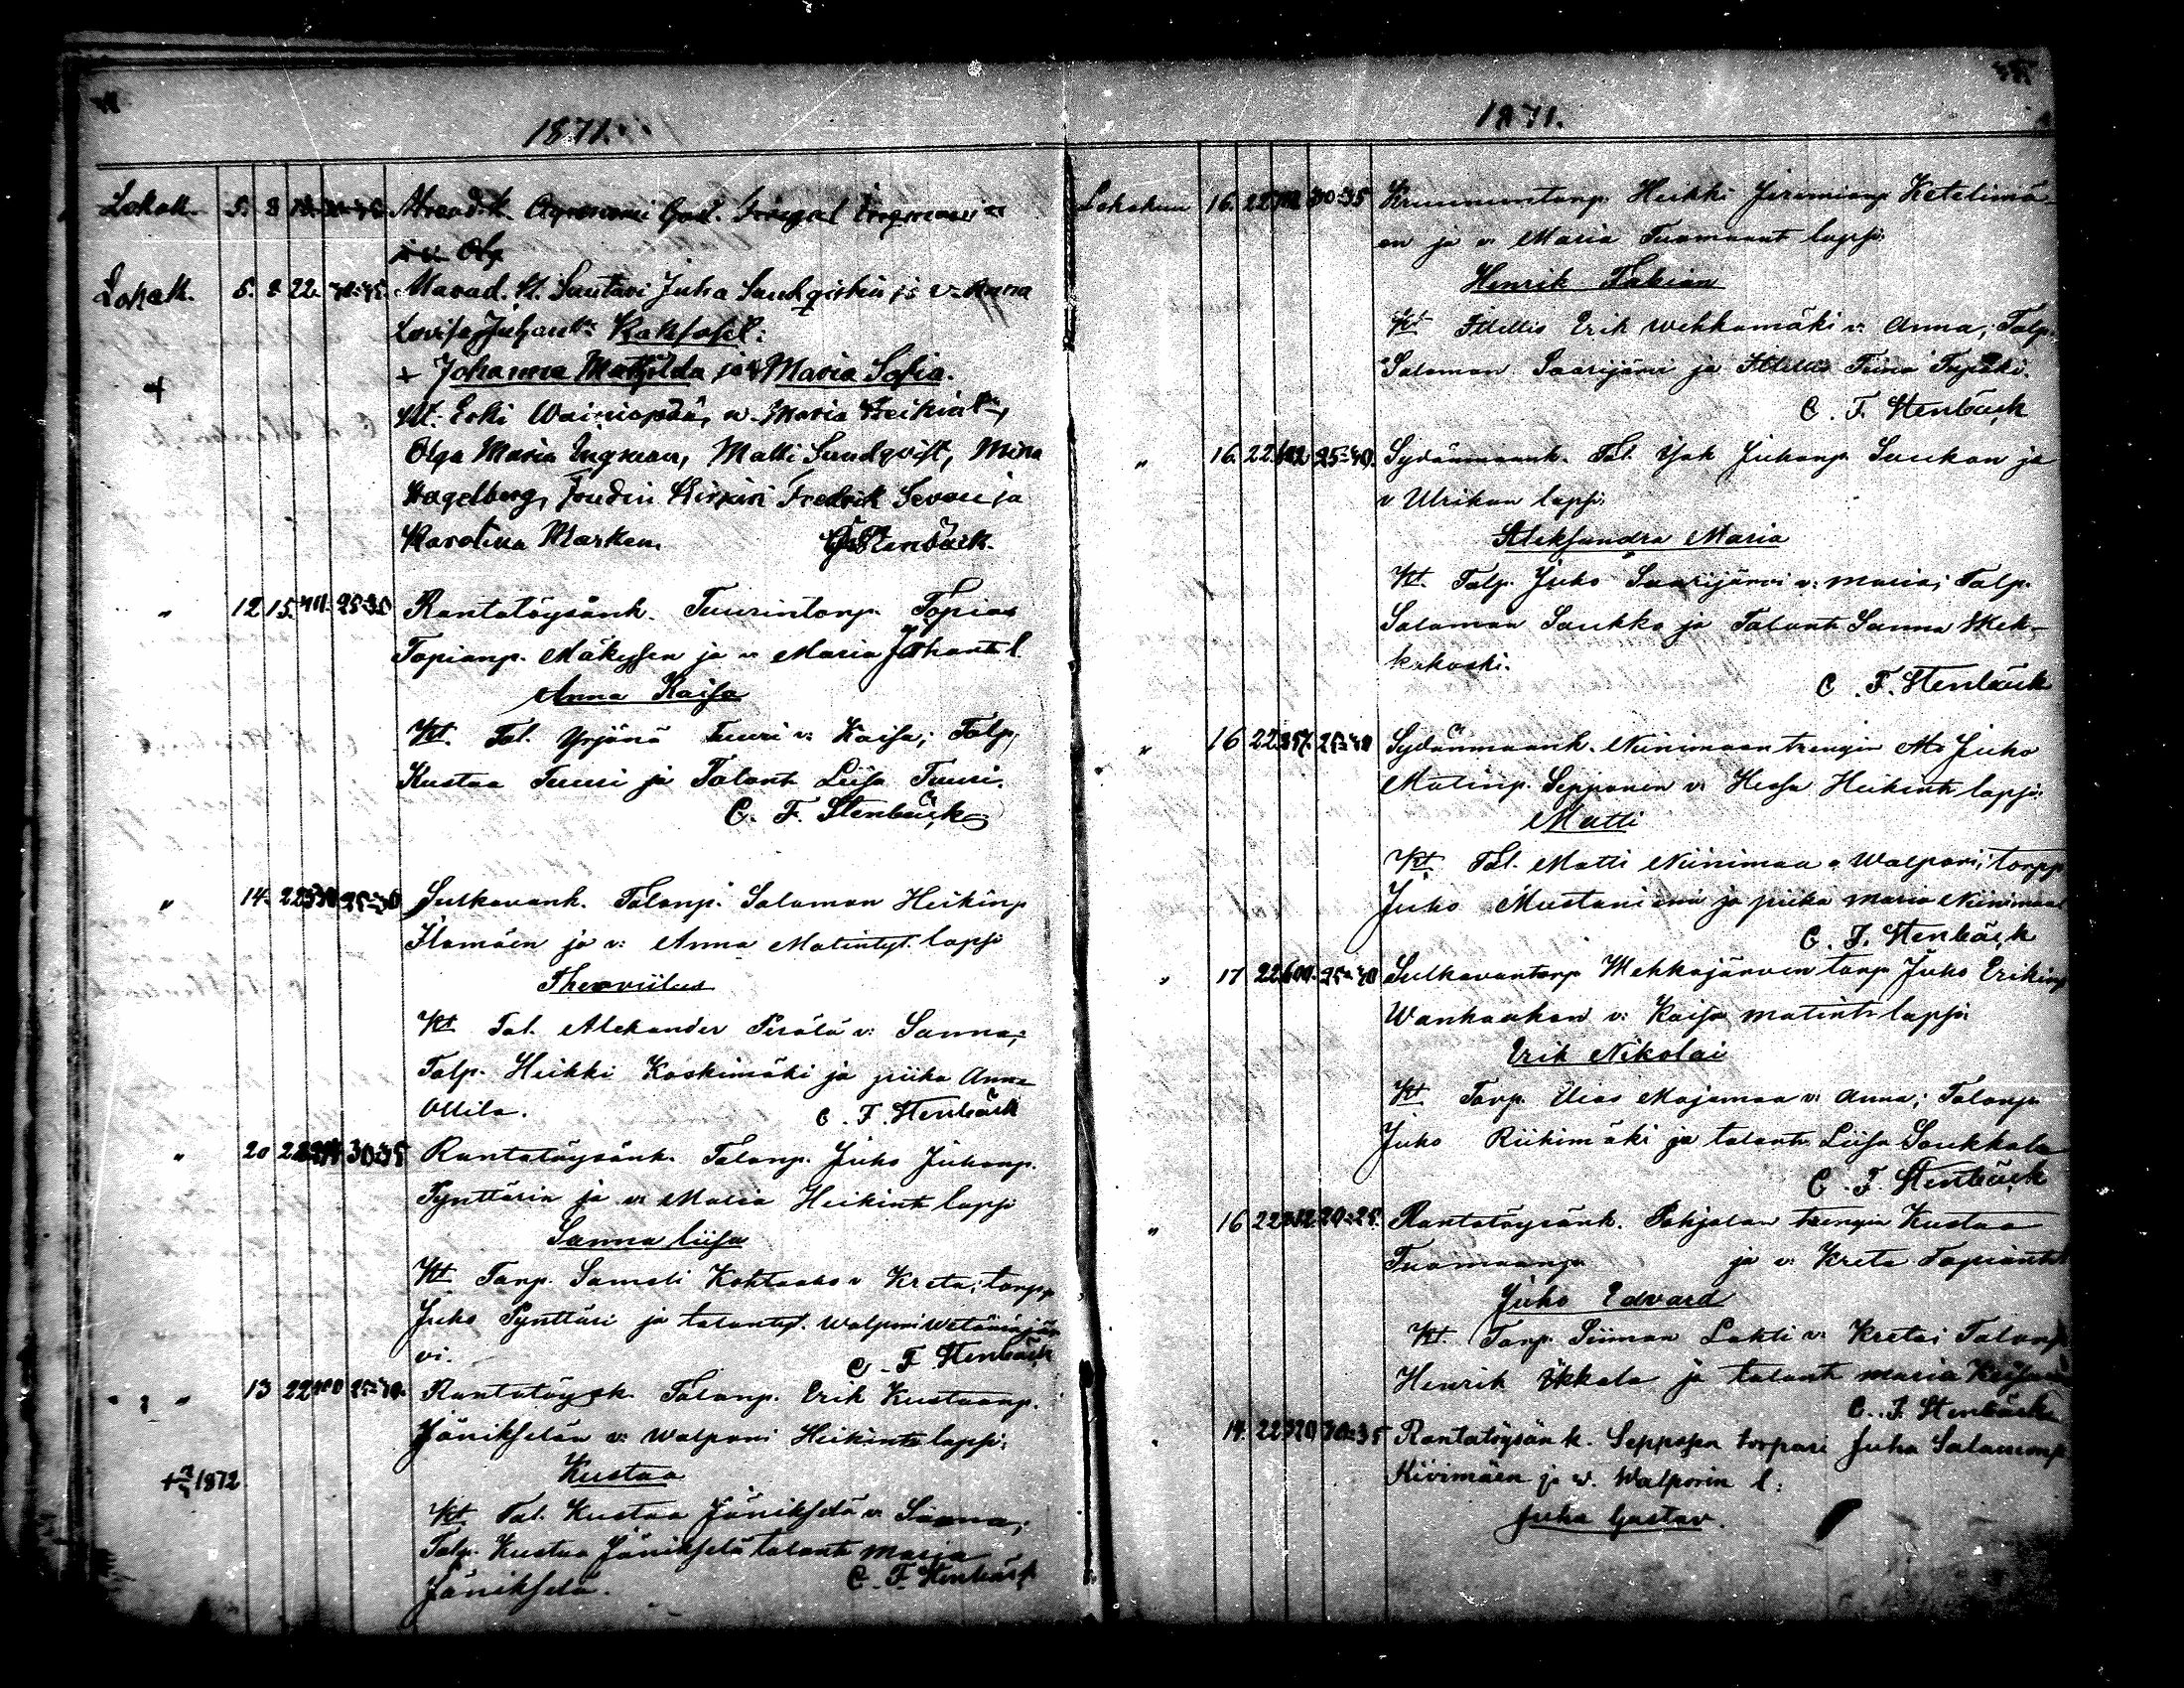 1871.
Lokak. 5. 8 Agronomi
Lokak. 5. 8 22. Mavad. Kl. Suutari Juha Sundqistin ja v. Anna
Lovisa Juhant: Kaksoset:
+ Johanna Mathilda ja Maria Sofia.
Kt. Erki Wainiopää, v. Maria Heikint,
Olga Maria Ingman, Matti Sundqvist, Mina
Hagelberg, Fredrik Sevon ja
Karolina Marken. Stenbäck.
" 12 15. 411. 25-30 Rantatöysänk. Tuurintorp. Topias
Topianp. Mäkysen ja v. Maria Juhant. l.
Anna Kaisa
Kt. Tal. Yrjänä Tuuri v. Kaisa; Talp.
Kustaa Tuuri ja Talont. Liisa Tuuri.
C. F. Stenbäck
" 14. 22 25-30 Sulkavank. Talonp. Salomon Heikinp
Ilamäen ja v: Anna Matintyt. lapsi
Theoviilus
Kt Tal. Aleksander Perälä v: Sanna;
Talp. Heikki Koskimäki ja piika Anna
Ollila. C. F. Stenbäck
" 20 22 30-35 Rantatöysänk. Talonp. Juho Juhonp.
Pynttärin ja v. Maria Heikint. lapsi
Sanna Liisa
Kt Torp. Sameli Kohtaaho v Kreta; torpp
Juho Pynttäri ja talontyt. Walpuri Wetämäjär
vi. C. F. Stenbäck
" 13 22 25-30. Rantatöys.k. Talonp. Erik Kustaanp.
Jäniksetän v: Walpuri Heikint. lapsi:
+ 1872 Kustaa
Kt Tal. Kustaa Jänikselä v: Sanna;
Talp. Kustaa Jänikselä talont Maria
Jänikselä. C. F. Stenbäck
1871.
Lokakuu 16. 22 30-35 Kruununtorp. Heikki Jeremianp Ketelimä-
en ja v: Maria Tuomaant lapsi:
Henrik Fabian
Kt Itellis Erik Wehkamäki v: Anna; Talp.
Salomon Saarijärvi ja Itellis Tiina
C. F. Stenbäck
" 16. 22. 25-30. Sydänmaank. Tal. Jak Juhonp. Saukon ja
v Ulrikan lapsi:
Aleksandra Maria
Kt. Talp. Juho Saarijärvi v: Maria; Talp.
Salomon Saukko ja Talont Sanna Kek-
kekoski.
C. F. Stenbäck
" 16 22 25-30 Sydänmaank. Niinimaan trengin Juho
Matinp. Sepponen v: Heikint lapsi:
Matti
Kt Tal. Matti Niinimaa v Walpuri; torpp
Juho Mustaniemi ja piika Maria Niinimaa
C. F. Stenbäck
" 17 22 600. 25-30 Sulkavantorp Mehkojärven torp Juho Erikinp
Wankaahon v: Kaisa Matint. lapsi:
Erik Nikolai
Kt Torp. Elias Majamaa v: Anna; Talonp.
Juho Riihimäki ja talont. Liisa Soukkala
C. F. Stenbäck
" 16 22 20-25. Rantatöysänk. Pohjalan trengin Kustaa
Tuomaanp. ja v: Kreta Topiant
Juho Edvard
Kt. Torp. Siiman Lahti v: Kreta; Talonp
Henrik Ykkala ja talont Maria
C. F. Stenbäck
14. 22 320 30-35 Rantatöysänk. Seppopen torpari Juha Salamonp
Kivimäen ja v. Walporin l:
Juha Gustav.